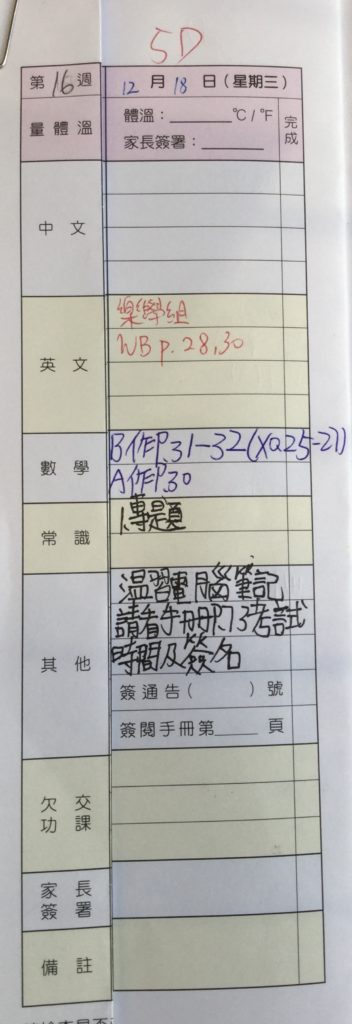 5D
第16週 12月18日(星期三)
量體溫 體溫:______°C/°F 完成
家長簽署:______
中文
英文 樂學組
WB p. 28,30
數學 B作P.31-32(XQ25-27)
A作P.30
常識 1.專題
其他 温習電腦筆記
請看手冊P.73考試
時間及簽名
簽通告( )號
簽閱手冊第____頁
欠交功課
家長簽署
備註